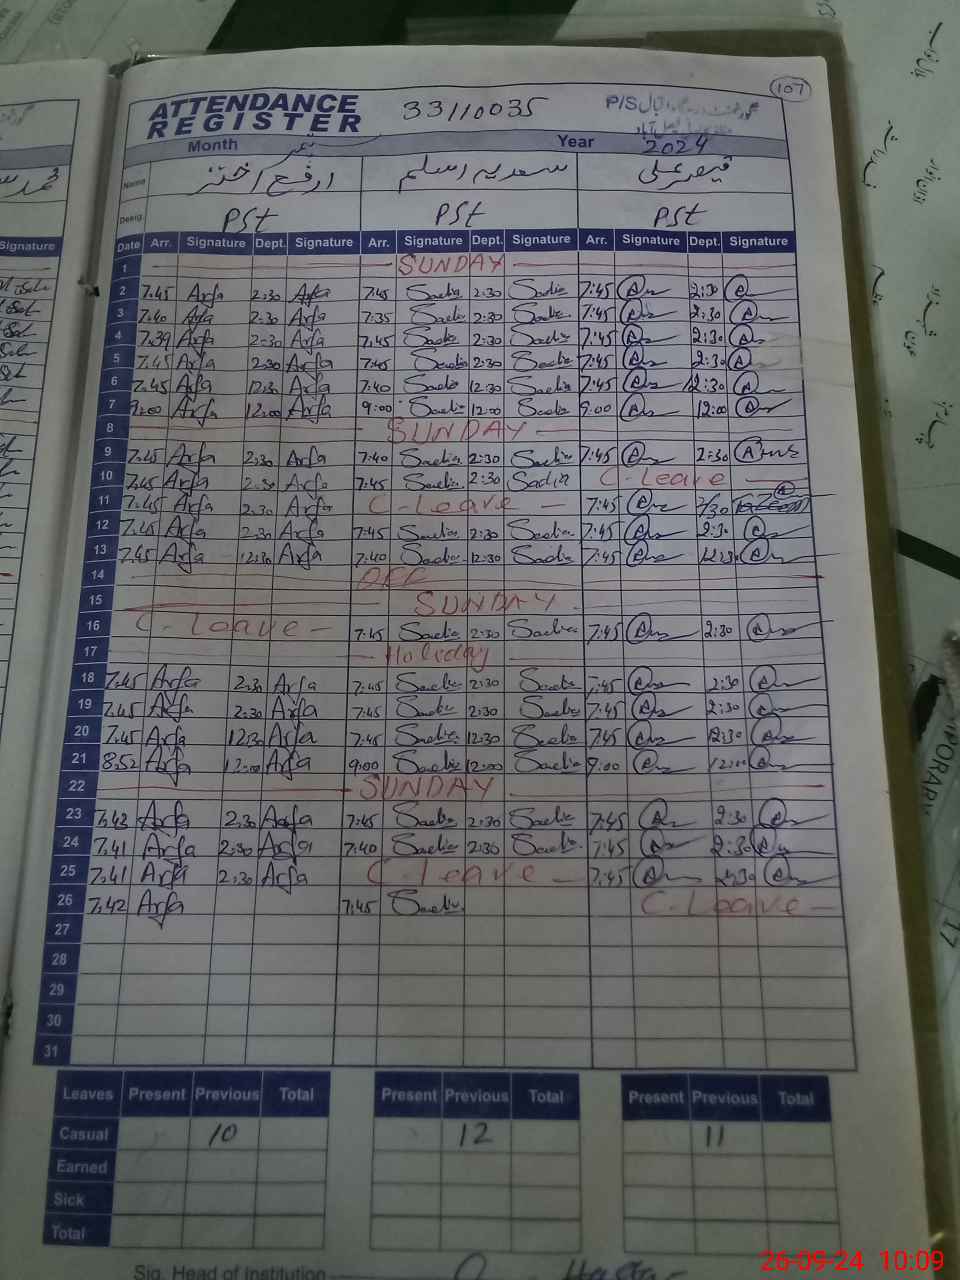 107
ATTENDANCE
REGISTER
33110035
P/S
Month ستمبر Year 2024
Name ارفع اختر سعدیہ اسلم قیصر علی
Desig. PSt PSt PSt
Signature
Date Arr. Signature Dept. Signature Arr. Signature Dept. Signature Arr. Signature Dept. Signature
1 SUNDAY
2 7.45 Arfa 2:30 Arfa 7:45 Sadia 2:30 Sadia 7:45 2:30
3 7.40 Arfa 2:30 Arfa 7:35 Sadia 2:30 Sadia 7:45 2:30
4 7.39 Arfa 2:30 Arfa 7.45 Sadia 2:30 Sadia 7:45 2:30
5 7.45 Arfa 2:30 Arfa 7:45 Sadia 2:30 Sadia 7:45 2:30
6 7.45 Arfa 12:30 Arfa 7:40 Sadia 12:30 Sadia 7:45 12:30
7 9:00 Arfa 12:00 Arfa 9:00 Sadia 12:00 Sadia 9:00 12:00
8 SUNDAY
9 7.45 Arfa 2:30 Arfa 7:40 Sadia 2:30 Sadia 7:45 2:30
10 7.45 Arfa 2:30 Arfa 7:45 Sadia 2:30 Sadia C-Leave
11 7.45 Arfa 2:30 Arfa C-Leave 7:45 2/30
12 7.45 Arfa 2:30 Arfa 7:45 Sadia 2:30 Sadia 7:45 2:30
13 7.45 Arfa 12:30 Arfa 7:40 Sadia 12:30 Sadia 7:45 12:30
14 OFF
15 SUNDAY
16 C-Leave 7:45 Sadia 2:30 Sadia 7:45 2:30
17 Holiday
18 7.45 Arfa 2:30 Arfa 7:45 Sadia 2:30 Sadia 7:45 2:30
19 7.45 Arfa 2:30 Arfa 7:45 Sadia 2:30 Sadia 7:45 2:30
20 7.45 Arfa 12:30 Arfa 7:45 Sadia 12:30 Sadia 7:45 12:30
21 8.52 Arfa 12:00 Arfa 9:00 Sadia 12:00 Sadia 9:00 12:00
22 SUNDAY
23 7.43 Arfa 2:30 Arfa 7:45 Sadia 2:30 Sadia 7:45 2:30
24 7.41 Arfa 2:30 Arfa 7:40 Sadia 2:30 Sadia 7:45 2:30
25 7.41 Arfa 2:30 Arfa C-Leave 7:45 2:30
26 7.42 Arfa 7:45 Sadia C-Leave
27
28
29
30
31
Leaves Present Previous Total Present Previous Total Present Previous Total
Casual 10 12 11
Earned
Sick
Total
Sig. Head of Institution
26-09-24 10:09